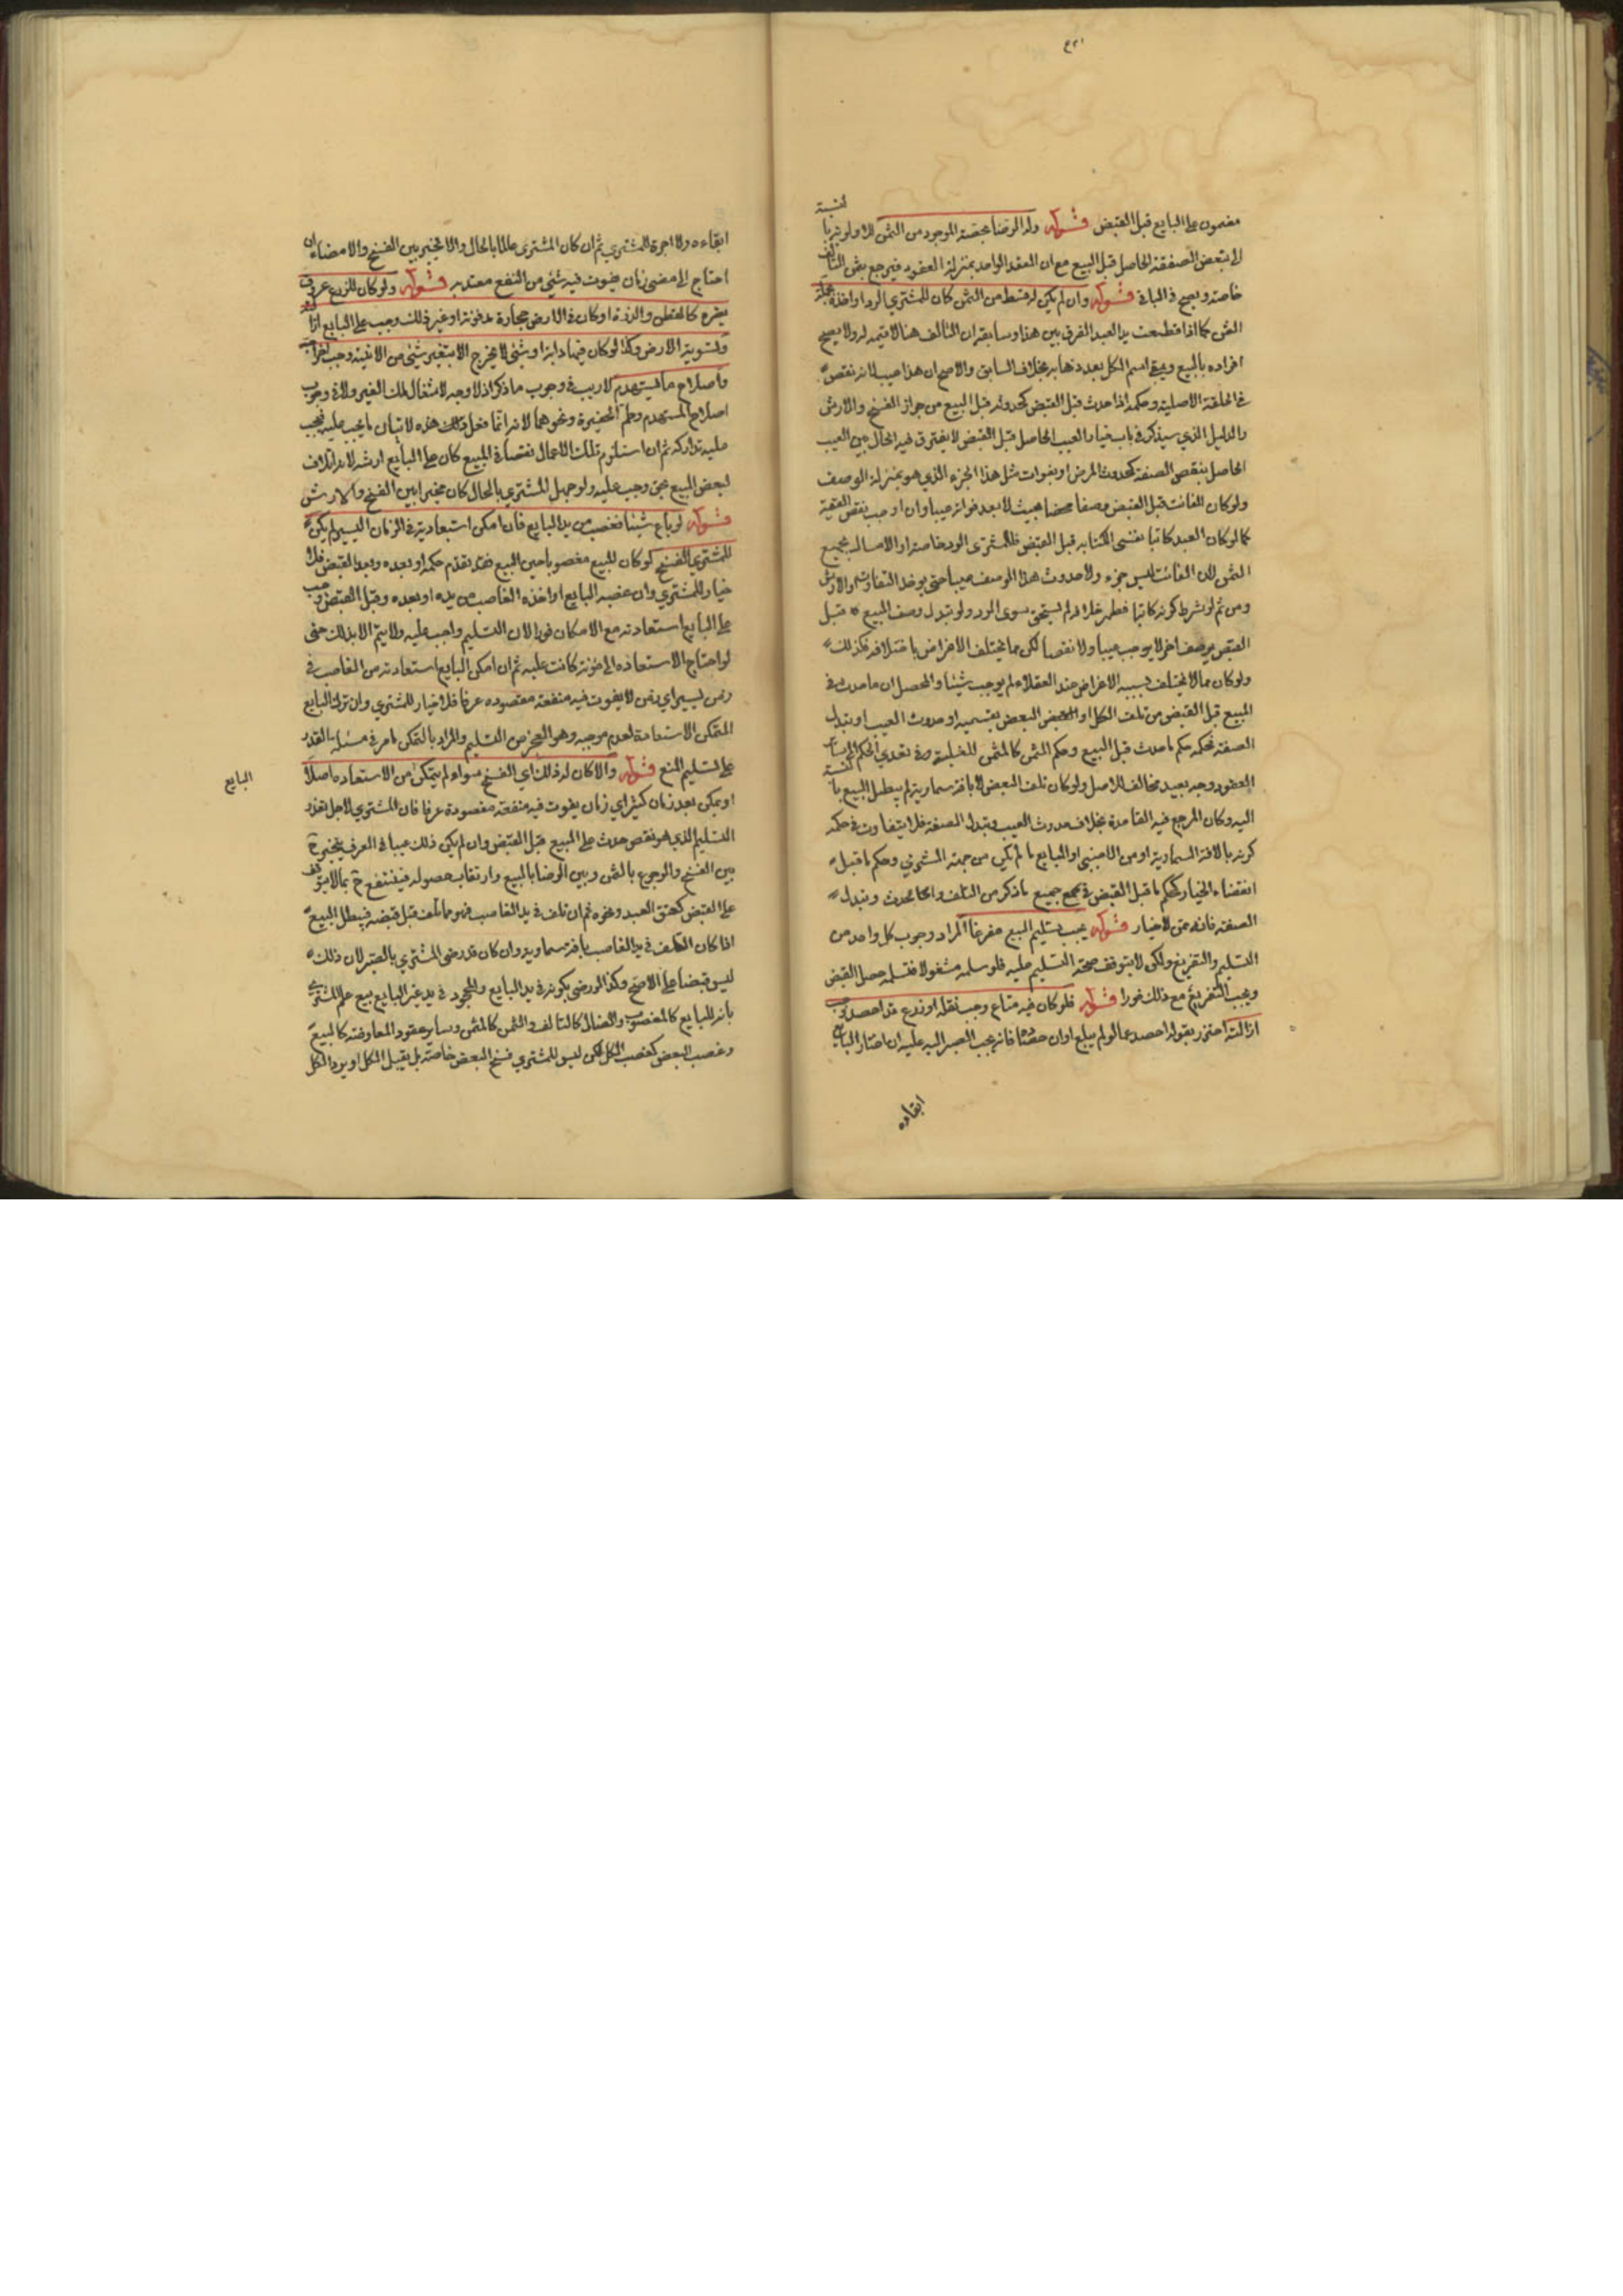 مضمون على البايع قبل القبض قوله وله الرضا بحصة الموجود من الثمن لانه لو رضى بالنسبة
الى تبعض الصفقة الحاصل قبل البيع مع ان العقد الواحد بمنزلة العقود فيرجع بثمن التالف
خاصة ويصح في الباقى قوله وان لم يكن له قسط من الثمن كان للمشتري الرد او اخذه بجملة
الثمن كما اذا قطعت يد العبد الفرق بين هذا وسابقه ان التالف هنا لا قيمة له ولا يصح
افراده بالبيع ويبقى اسم الكل بعد ذهابه بخلاف السابق والاصح ان هذا عيب لانه نقص
في الخلقة الاصلية وحكمه اذا حدث قبل القبض كحدوثه قبل البيع من جواز الفسخ والارش
والدليل الذي سيذكر في باب خيار العيب الحاصل قبل القبض لا يفترق فيه الحال بين العيب
الحاصل بنقص الصفة كحدوث المرض او بفوات مثل هذا الجزء الذي هو بمنزلة الوصف
ولو كان الفائت قبل القبض وصفا محضا بحيث لا يعد فواته عيبا وان اوجب نقص القيمة
كما لو كان العبد كاتبا فنسى الكتابة قبل القبض فللمشترى الرد خاصة او الامساك بجميع
الثمن لان الفائت ليس جزء ولا حدوث هذا الوصف عيبا حتى يوخذ التفاوت او الارش
ومن ثم لو شرط كونه كاتبا فظهر خلافه لم يستحق سوى الرد ولو تبدل وصف المبيع قبل
القبض بوصف اخر لا يوجب عيبا ولا نقصا لكن مما يختلف الاغراض باختلافه فكذلك
ولو كان مما لا يختلف بسببه الاغراض عند العقلاء لم يوجب شيئا والمحصل ان ما حدث في
المبيع قبل القبض من تلف الكل او البعض بقسميه او حدوث العيب او تبدل
الصفة فحكمه حكم ما حدث قبل البيع وحكم الثمن كالمثمن
العوض وجه بعيد مخالف للاصل ولو كان تلف البعض لا بافة سماوية لم يبطل البيع بالنسبة
اليه وكان المرجع فيه القاعدة بخلاف حدوث العيب وتبدل الصفة فلا يتفاوت في حكمه
كونه بالافة السماوية او من الاجنبي او البايع ما لم يكن من جهة المشتري وحكم ما قبل
انقضاء الخيار كحكم ما قبل القبض في جميع ما ذكر من التلف وانحاء حدوث وتبدل
الصفة فانه ممن لا خيار قوله يجب تسليم المبيع مفرغا المراد وجوب كل واحد من
التسليم والتفريغ ولكن لا يتوقف صحة التسليم عليه فلو سلمه مشغولا فتسلمه حصل القبض
ويجب التفريغ مع ذلك فورا قوله فلو كان فيه متاع وجب نقله او زرع قد احصد وجب
ازالته احترز بقوله احصد عما لو لم يبلغ اوان حصده فانه يجب الصبر اليه عليه ان اختار البايع
ابقاءه
ابقاءه ولا اجرة للمشترى ثم ان كان المشترى عالما بالحال والا تخير بين الفسخ والامضاء ان
احتاج الى مضى زمان يفوت فيه شئ من النفع معتد به قوله ولو كان للزرع عروق
يضره كالقطن والذرة او كان في الارض حجارة مدفونة او غير ذلك وجب على البايع ازالته
وتسوية الارض وكذا لو كان فيها دابة او شئ لا يخرج الا بتغير شئ من الابنية وجب اخراجه
واصلاح ما يستهدم لا ريب في وجوب ما ذكر اذ لا وجه لاشغال ملك الغير ولا في وجوب
اصلاح المستهدم وطم الحفيرة ونحوهما لانه انما فعل ذلك هذه لاتيان ما يجب عليه فيجب
عليه تداركه ثم ان استلزم تلك الاعمال نقصا في المبيع كان على البايع ارشه لانه اتلاف
لبعض المبيع بحق وجب عليه ولو جهل المشتري بالحال كان مخيرا بين الفسخ والارش
قوله لو باع شيئا فغصب من يد البايع فان امكن استعادته في الزمان اليسير لم يكن
للمشتري الفسخ لو كان المبيع مغصوبا حين البيع فقد تقدم حكمه او بعده وبعد القبض فلا
خيار للمشتري وان غصبه البايع او اخذه الغاصب من يده او بعده وقبل القبض وجب
على البايع استعادته مع الامكان فورا لان التسليم واجب عليه ولا يتم الا بذلك حتى
لو احتاج الاستعاده الى مؤنة كانت عليه ثم ان امكن البايع استعادته من الغاصب في
زمن يسير اي زمن لا يفوت فيه منفعة مقصوده عرفا فلا خيار للمشتري وان ترك البايع
المتمكن الاستعادة لعدم موجبه وهو العجز من التسليم والمراد بالتمكن ما مر في مسئلة القدرة
على تسليم المنع قوله والا كان له ذلك اي الفسخ سواء لم يتمكن من الاستعاده اصلا
البايع
او يمكن بعد زمان كثير اي زمان يفوت فيه منفعة مقصودة عرفا فان المشتري لاجل تعذر
التسليم الذي هو نقص حدث على المبيع قبل القبض وان لم يكن ذلك عيبا في العرف يتخير ح
بين الفسخ والرجوع بالثمن وبين الرضا بالمبيع وارتقاب حصوله فينتفع ح بما لا يتوقف
على القبض كعتق العبد ونحوه ثم ان تلف في يد الغاصب فهو مما تلف قبل قبضه فيبطل البيع
اذا كان التلف في يد الغاصب بافة سماوية وان كان قد رضى المشتري بالصبر لان ذلك
ليس قبضا على الاصح وكذا لو رضى بكونه في يد البايع والمجحود في يد غير البايع بيع علم المشتري
بانه للبايع كالمغصوب والضال كالتالف والثمن كالمثمن وساير عقود المعاوضة كالبيع
وغصب البعض كغصب الكل لكن ليس للمشتري فسخ البعض خاصة بل يقبل الكل او يرد الكل